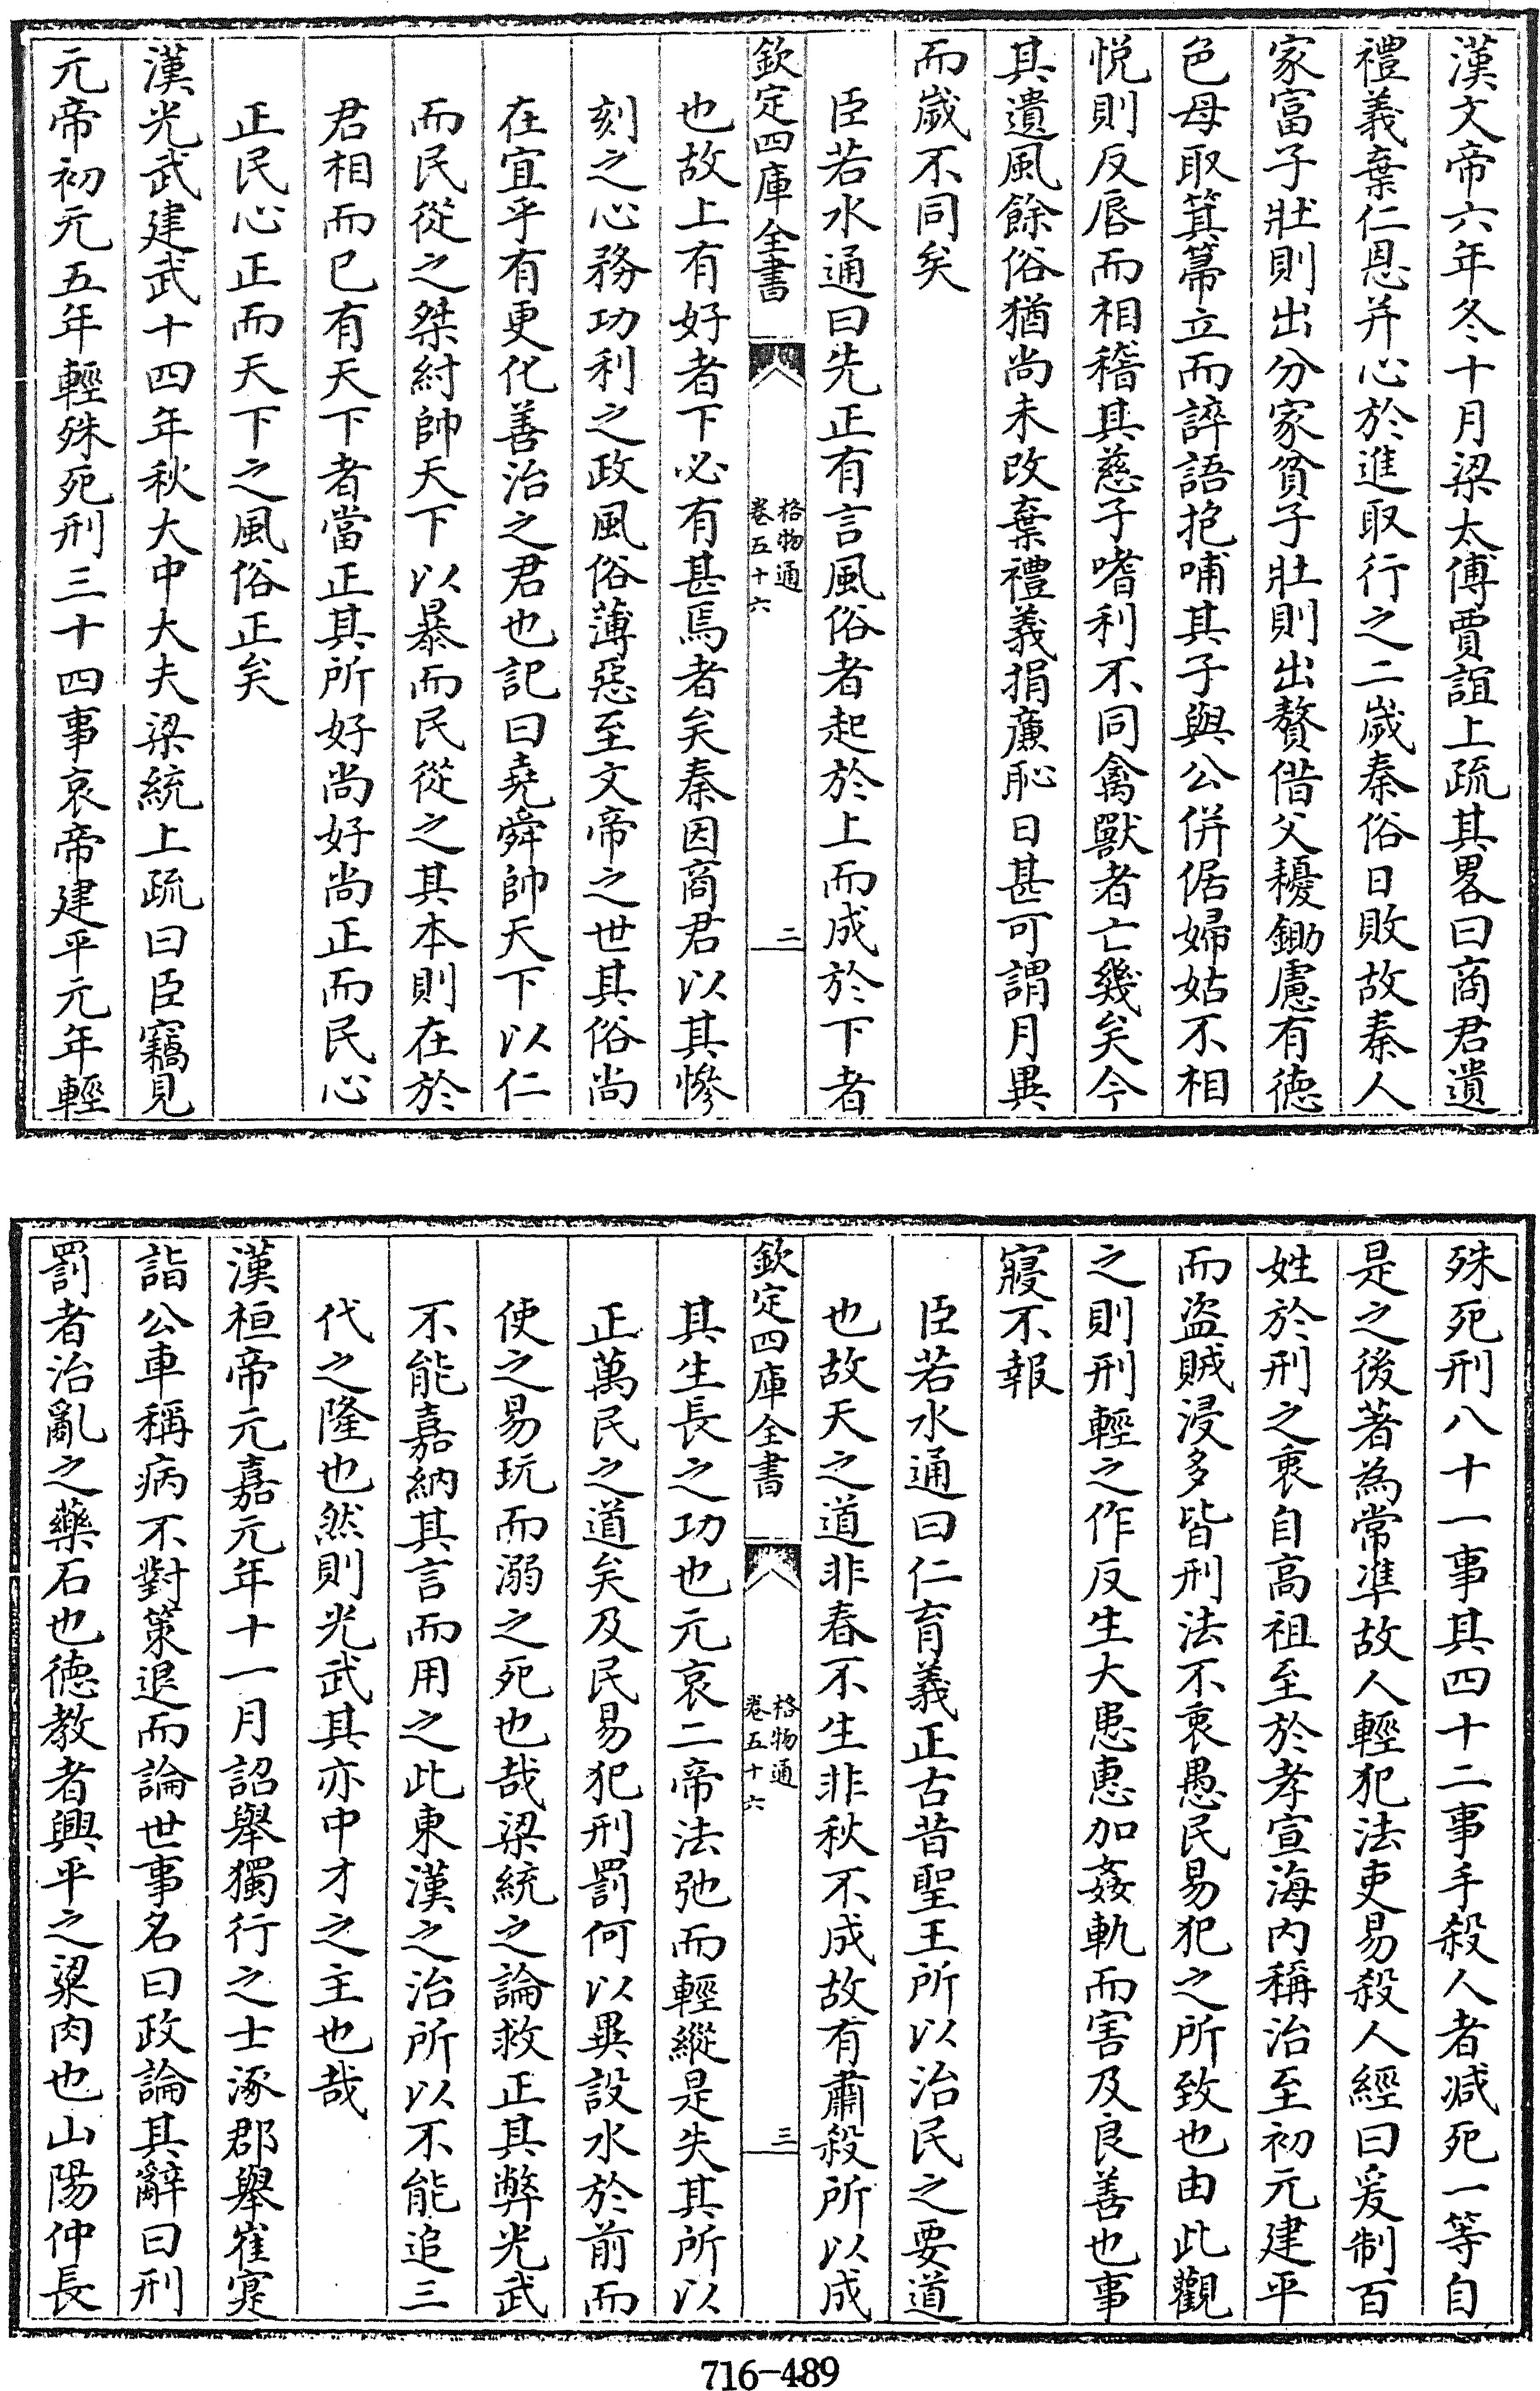 漢文帝六年冬十月梁太傅賈誼上疏其畧曰商君遺
禮義棄仁恩并心於進取行之二歲秦俗日敗故秦人
家富子壯則出分家貧子壯則出贅借父耰鋤慮有德
色母取箕箒立而誶語抱哺其子與公併倨婦姑不相
悅則反唇而相稽其慈子嗜利不同禽獸者亡幾矣今
其遺風餘俗猶尚未改棄禮義捐廉恥日甚可謂月異
而歲不同矣
臣若水通曰先正有言風俗者起於上而成於下者
欽定四庫全書
格物通
卷五十六
二
也故上有好者下必有甚焉者矣秦因商君以其慘
刻之心務功利之政風俗薄惡至文帝之世其俗尚
在宜乎有更化善治之君也記曰堯舜帥天下以仁
而民從之桀紂帥天下以暴而民從之其本則在於
君相而已有天下者當正其所好尚好尚正而民心
正民心正而天下之風俗正矣
漢光武建武十四年秋大中大夫梁統上疏曰臣竊見
元帝初元五年輕殊死刑三十四事哀帝建平元年輕
殊死刑八十一事其四十二事手殺人者减死一等自
是之後著為常準故人輕犯法吏易殺人經曰爰制百
姓於刑之衷自高祖至於孝宣海内稱治至初元建平
而盜賊浸多皆刑法不衷愚民易犯之所致也由此觀
之則刑輕之作反生大患惠加姦軌而害及良善也事
寢不報
臣若水通曰仁育義正古昔聖王所以治民之要道
也故天之道非春不生非秋不成故有肅殺所以成
欽定四庫全書
格物通
卷五十六
三
其生長之功也元哀二帝法弛而輕縱是失其所以
正萬民之道矣及民易犯刑罰何以異設水於前而
使之易玩而溺之死也哉梁統之論救正其弊光武
不能嘉納其言而用之此東漢之治所以不能追三
代之隆也然則光武其亦中才之主也哉
漢桓帝元嘉元年十一月詔舉獨行之士涿郡舉崔寔
詣公車稱病不對策退而論世事名曰政論其辭曰刑
罰者治亂之藥石也德教者興平之粱肉也山陽仲長
716-489